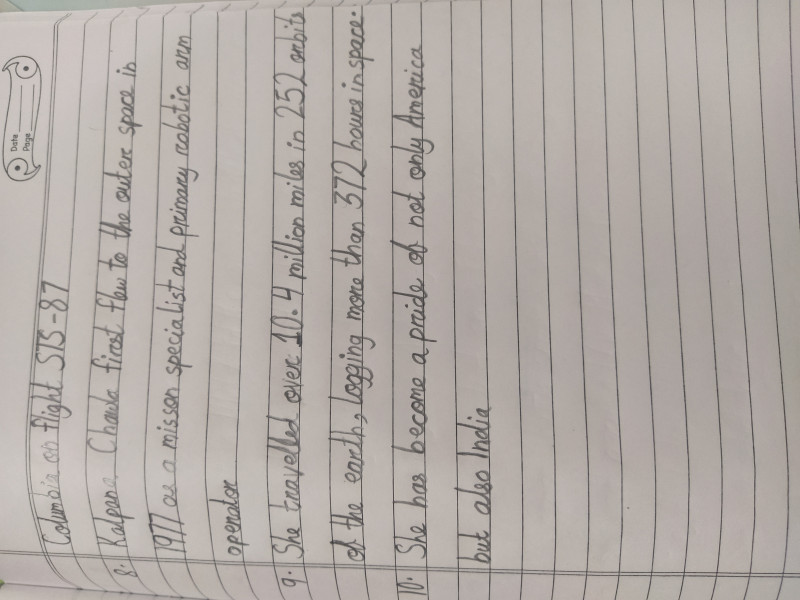 Date
Page
Columbia on flight STS-87
8. Kalpana Chawla first flew to the outer space in
1977 as a misson specialist and primary robotic arm
operator
9. She travelled over 10.4 million miles in 252 orbits
of the earth, logging more than 372 hours in space.
10. She has become a pride of not only America
but also India